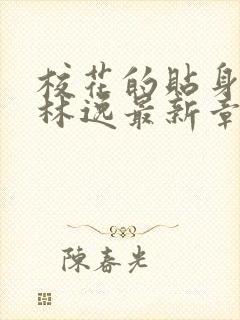 校花的贴身
林逸最新章
陈春光